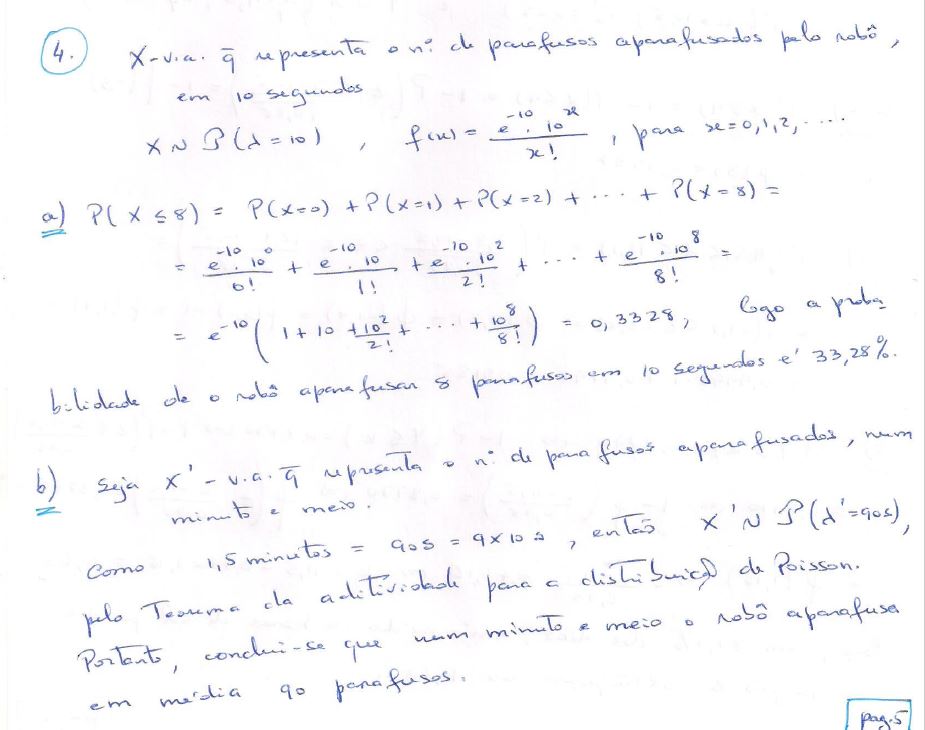 4. X-v.a. q̄ representa o nº de parafusos aparafusados pelo robô,
em 10 segundos
X ~ P(λ=10) , f(x) = e^-10 . 10^x / x! , para x=0,1,2,....
a) P(X ≤ 8) = P(X=0) + P(X=1) + P(X=2) + ... + P(X=8) =
= e^-10 . 10^0 / 0! + e^-10 . 10 / 1! + e^-10 . 10^2 / 2! + ... + e^-10 . 10^8 / 8! =
= e^-10 ( 1 + 10 + 10^2/2! + ... + 10^8/8! ) = 0,3328, logo a proba
bilidade de o robô aparafusar 8 parafusos em 10 segundos é 33,28%.
b) Seja X' - v.a. q̄ representa o nº de parafusos aparafusados, num
minuto e meio.
Como 1,5 minutos = 90s = 9x10 s, então X' ~ P(λ'=90s),
pelo Teorema da aditividade para a distribuição de Poisson.
Portanto, conclui-se que num minuto e meio o robô aparafusa
em média 90 parafusos.
pag.5